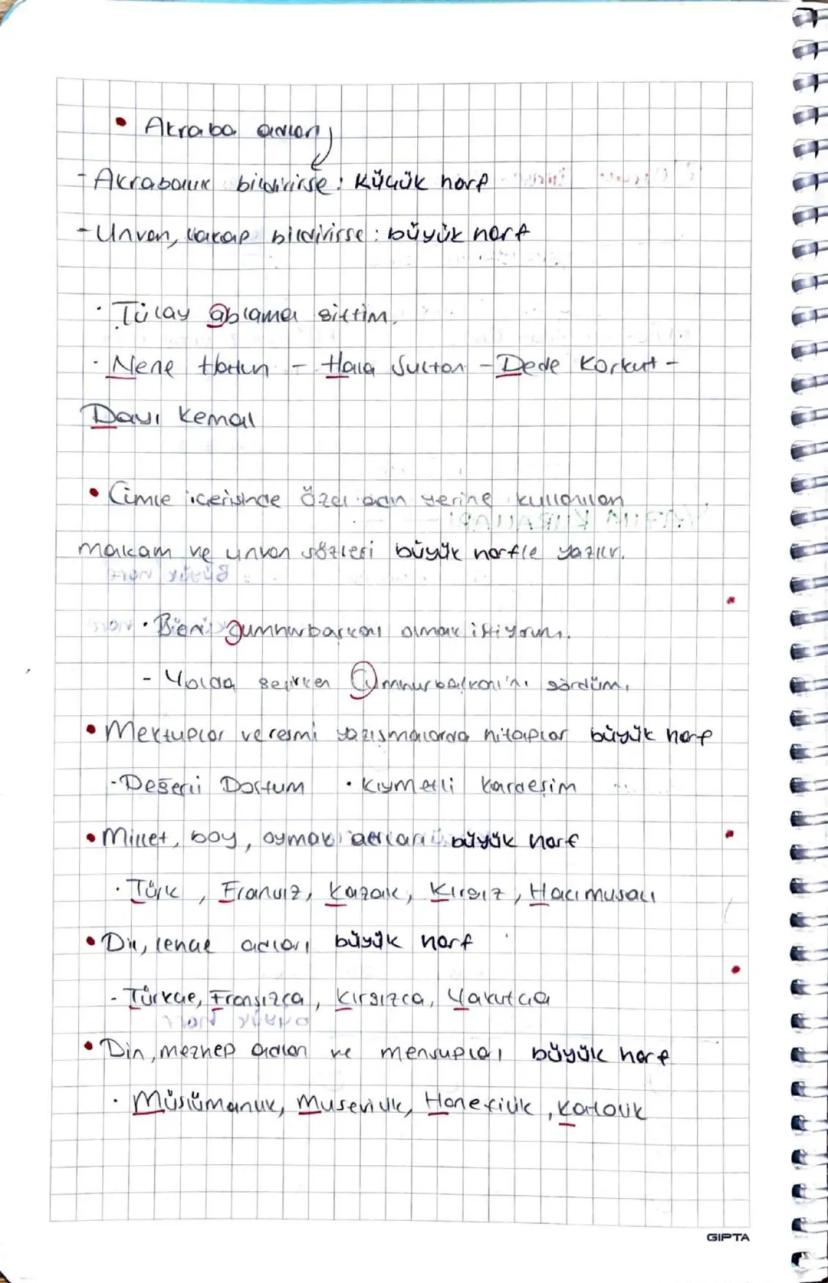 • Akraba adları
- Akrabalık bildirirse: Küçük harf
- Unvan, lakap bildirirse: büyük harf
· Tülay ablama gittim.
· Nene Hatun - Hala Sultan - Dede Korkut -
Dayı Kemal
• Cümle içerisinde özel adın yerine kullanılan
makam ve unvan sözleri büyük harfle yazılır.
· Ben cumhurbaşkanı olmak istiyorum.
- Yolda geçirken Cumhurbaşkanı'nı gördüm.
• Mektuplar ve resmi yazışmalarda hitaplar büyük harf
- Değerli Dostum · Kıymetli Kardeşim
• Millet, boy, oymak adları büyük harf
· Türk, Fransız, Kazak, Kırgız, Hacımusalı
• Dil, lehçe adları büyük harf
- Türkçe, Fransızca, Kırgızca, Yakutça
• Din, mezhep adları ve mensupları büyük harf
· Müslümanlık, Musevilik, Hanefilik, Katolik
GIPTA